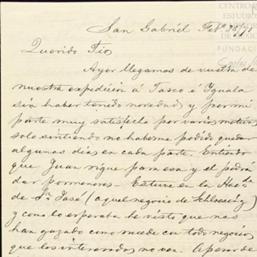 San Gabriel Feb.
Querido Tio
Ayer llegamos de vuelta de
nuestra expedición á Taxco é Iguala
sin haber tenido novedad y por mi
parte muy satisfecho por varios motivos,
solo sintiendo no haberme podido quedar
algunos dias en cada parte. Entiendo
que Juan sigue para esa y el podrá
dar pormenores. Estuve en la Hacda
de Sn José (aquel negocio de
y como lo esperaba he visto que nos
han juzgado como sucede en todo negocio
que los interesados no ven. A pesar de